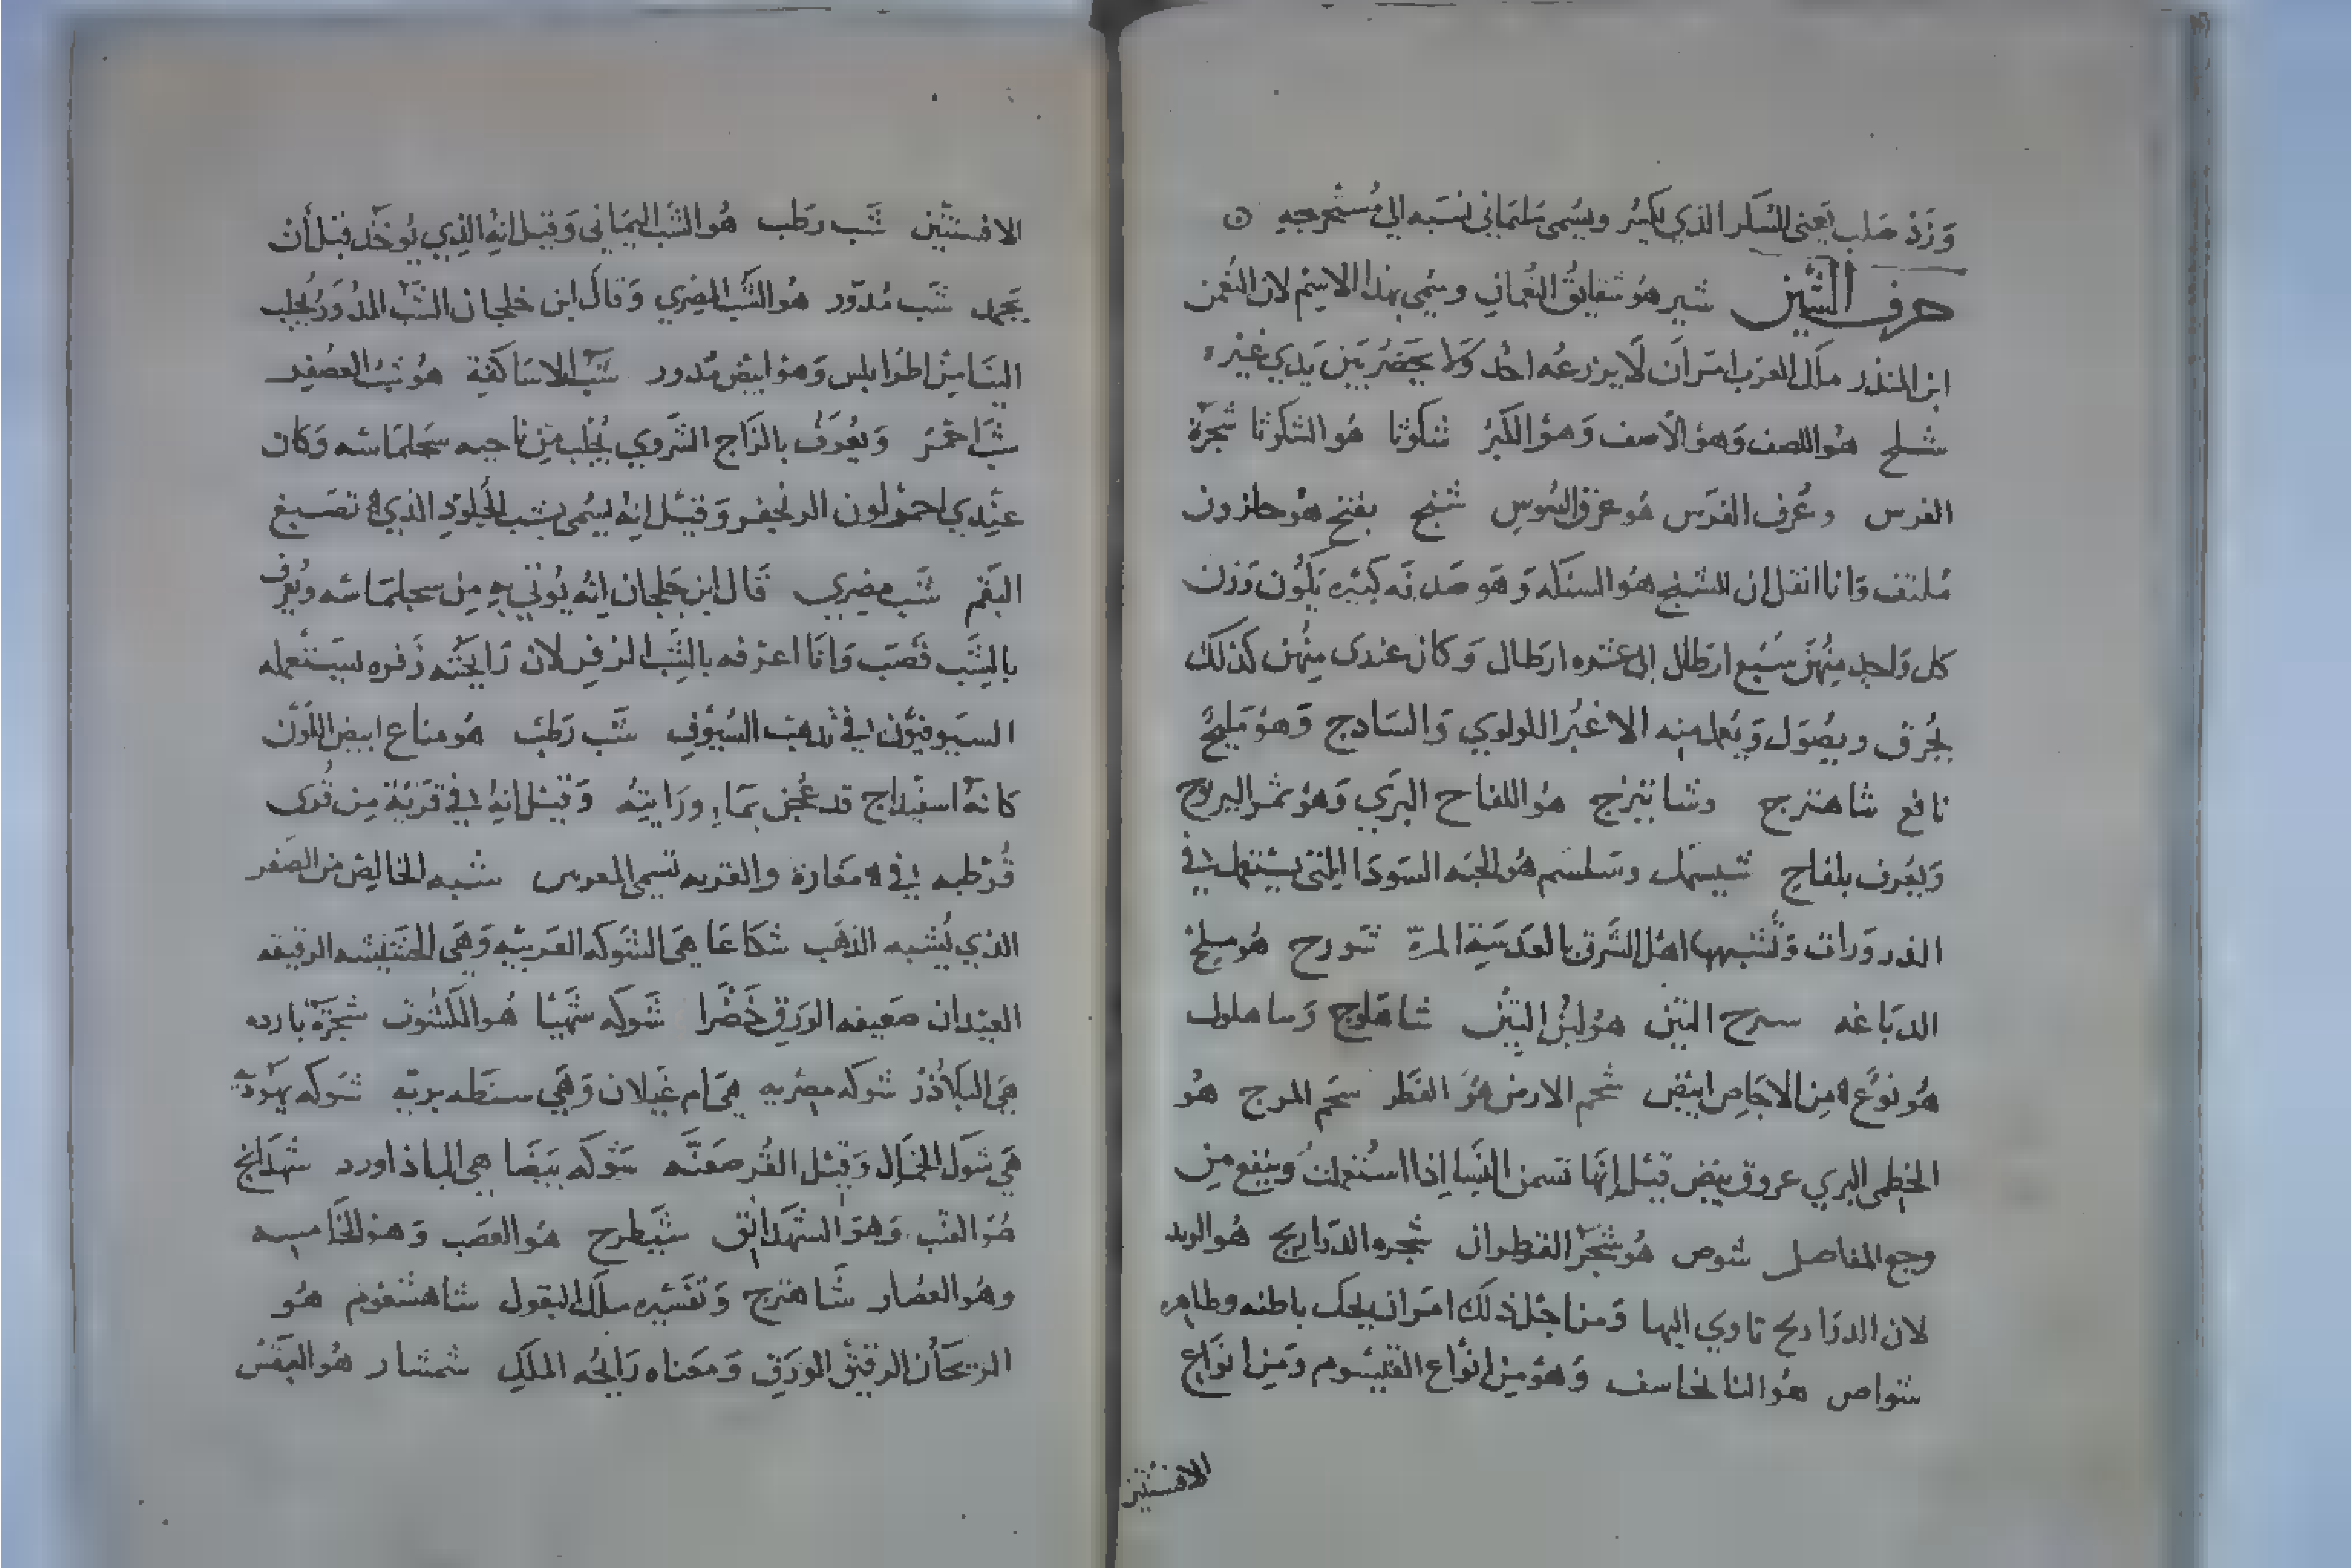 وَزَدْ صَلب يَعني السكر الذي يكسر ويسُمى سَلمَاني نسَبه الي مُستخرجه ۞
حرف الشين شير هُو شقايق النُعماني وسُمي بهذا الاسِم لان النُعمن
ابن المنذر ملك العَرب امَرَ ان لا يزرعُه احُد وَلا يحضرُ بَين يَدي غَيره
شلح هُو اللصف وَهو الاصف وَهوُ الكَبرُ شكوثا هُو الشكوثا شجرَة
الفرس وعُرف الفرَس هُو عرق السُوسِ شنج بفنج هوُ حلزون
مُلتف وَانا انقل ان الشنج هُو السنكه وَهوَ صَدفَه كبيَره يَكُون وَزن
كل وَاحِد منُهنَ سَبع ارطال الى عشره ارطال وَكان عندَى منُهن كذلك
يُحرق ويصُول وَيُعمل منه الاغبرُ اللولوي وَالسَادج وَهوُ مَليحُ
نافع شاهترج وشابيزج هُو اللفاح البرَي وَهوُ ثمَر اليبروح
وَيعُرف بلفاح شيسمك وسَلسم هُو الحبَه السَودَا التى يستعمل في
الذرورات وَتُشبهها اهل الشَرق بالعَدسَية المرةّ شورح هُو ملح
الدبَاغه سرح التين هوُ لبنُ التِين شاهلوج وَساهلوك
هُو نوُع من الاجَاص ابيَض شحم الارض هُوَ الفَطر شحم المرج هُو
الخطمى البري عروق بيض قيَل انِهَا تسمن النسَا اذا استُعملت وَينفع مِن
وجع المفاصل شوص هُو شجرَ القطران شجره الدَراريح هُو الربد
لان الدرَاريح تاوي اليها وَمن اجَل ذلكَ امَر ان يحك باطنه وظاهره
شواص هُو النالخاسف وَهوَ مِن انوُاع القيسُوم وَمِن انوَاع
الافسنتين
الافسنتين شَب رطب هُو الشَب اليمَاني وَقيل انهُ الذِي يُوخَذ قبل أَن
يجمد شَب مُدَوّر هُو الشَب المصَري وَقال ابن خلجان الشَبّ المدُوَر يُجلب
الينا مِن اطرابلس وَهوَ ابيض مُدور شَبّ الاساكفة هوُ شبُ العصُفر
شبَ احمَر وَيعُرفُ بالزَاج السَروي يُجلب مِن ناحيه سَجلمَاسَه وَكان
عنِدي احمرُ لون الزنجفر وَقيَل انِه يسُمى شب الجُلودِ الذي تصَبغ
البَقم شَب مضِري قَال ابن جَلجان انُه يُوتي بهِ مِن سجلمَاسَه ويُعرف
بالشَب قصَب وَانَا اعرَفه بالشَب الزفر لان رَايحتُه زَفره يسَتعمله
السَيوفيوُن في تذهيب السُيوُفِ شَب رَطب هُو مناع ابيض اللَون
كانهُ اسفيَداج قد عُجن بمَاءِ وراَيتهُ وَقيل انهُ في قرَيَة مِن قُرى
قُرطبه في مغارة والقريه تسَمى المعدس شبه الخالِصُ من الصَفر
الذي يُشبه الذهَب شكاعَا هَى الشَوكه العَربيَه وَهَى الحشَيشه الرقيقه
العيَدان ضَعيفه الورَق خَضرا شَوكه شَهيبَا هُو الكشُوث شجَرَة بارده
هِىَ البَلاُذرُ شوكه مِصريه هِىَ ام غَيلان وَهَي سنطه بريَه شوَكه يهَوُديَة
هَي شوَك الجمَال وَقيَل القُرصَعنَه شوَكه بيَضَا هِي الباذاورد شهدَانج
هُوَ القنَب وَهوَ الشهدَانق شيَطرح هوُ العصَب وَهوَ الخَامسِه
وهُو العُصار شَاهترج وَتفسَيره مَلك البقول شاهسَفرم هُو
الريحَان الرقيق الورَق وَمعَناه رَايحُه الملكِ شمشار هُو البقَسُ